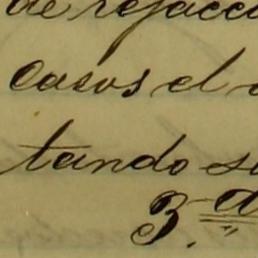 de refacci
casos el
tando s
3.a